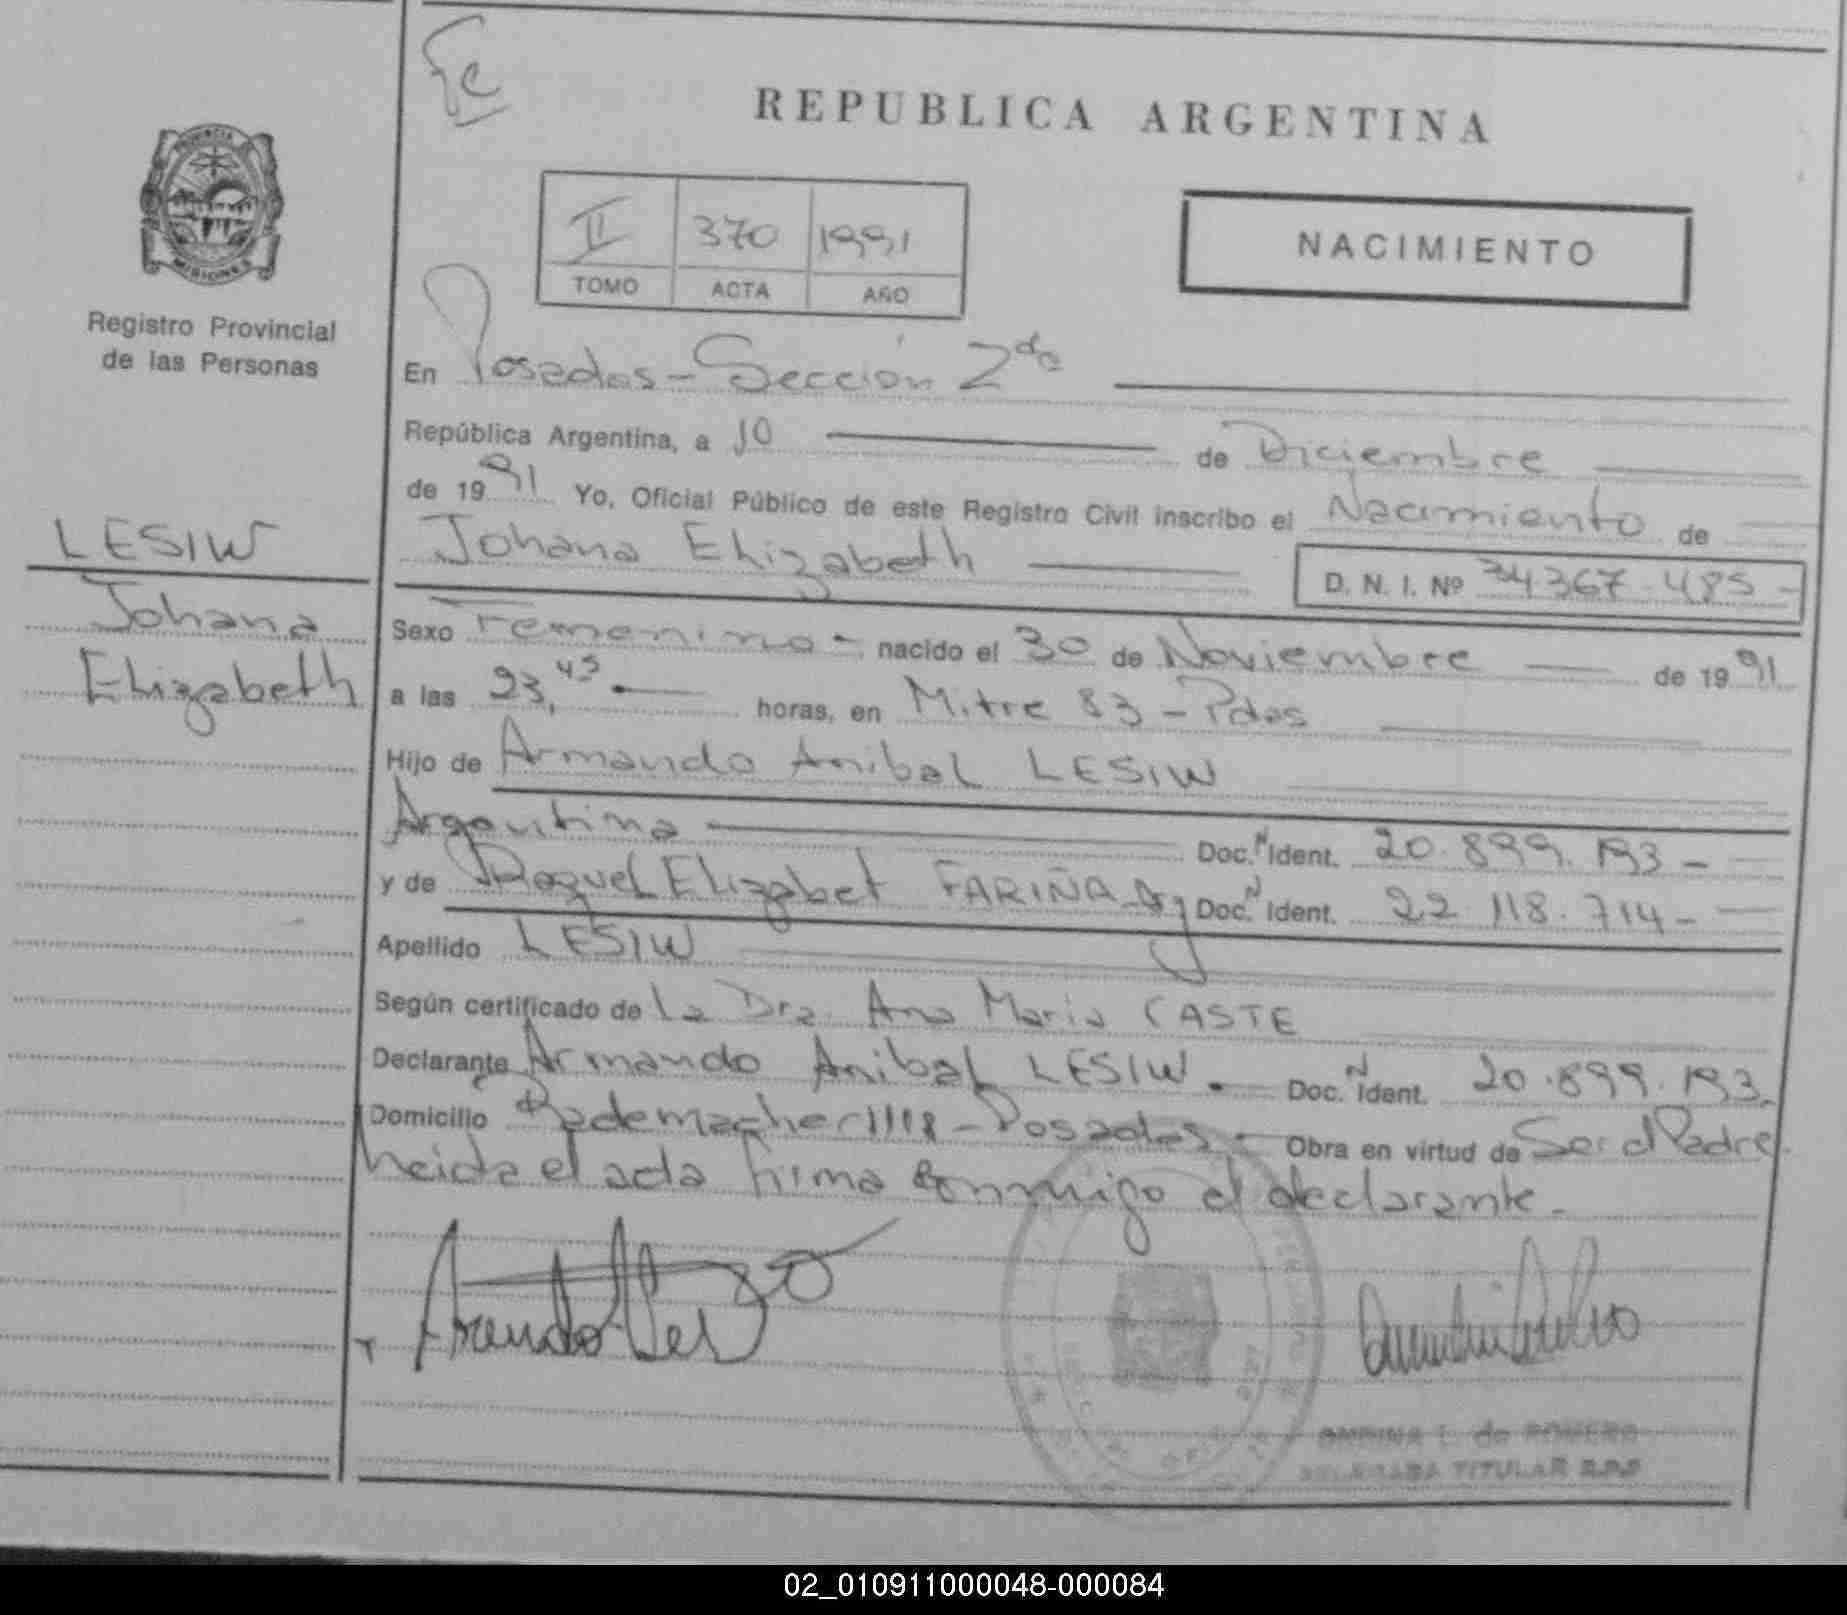 Fe
REPUBLICA ARGENTINA
II 370 1991
TOMO ACTA AÑO
NACIMIENTO
MISIONES
Registro Provincial
de las Personas
En Posadas - Sección 2da
República Argentina, a 10 de Diciembre
de 1991 Yo, Oficial Público de este Registro Civil inscribo el Nacimiento de
Johana Elizabeth D. N. I. Nº 34.367.485-
LESIW
Johana
Elizabeth
Sexo Femenino - nacido el 30 de Noviembre de 1991
a las 23,45 horas, en Mitre 83 - Pdas
Hijo de Armando Anibal LESIW
Argentina Doc. N Ident. 20.899.193-
y de Raquel Elizabet FARIÑA - Arg Doc. N Ident. 22.118.714-
Apellido LESIW
Según certificado de la Dra. Ana Maria CASTE
Declarante Armando Anibal LESIW. Doc. N Ident. 20.899.193
Domicilio Rademacher 1118 - Posadas - Obra en virtud de Ser el Padre.
Leida el acta firma conmigo el declarante.
ONDINA L. de ROMERO
DELEGADA TITULAR R.P.P
02_010911000048-000084